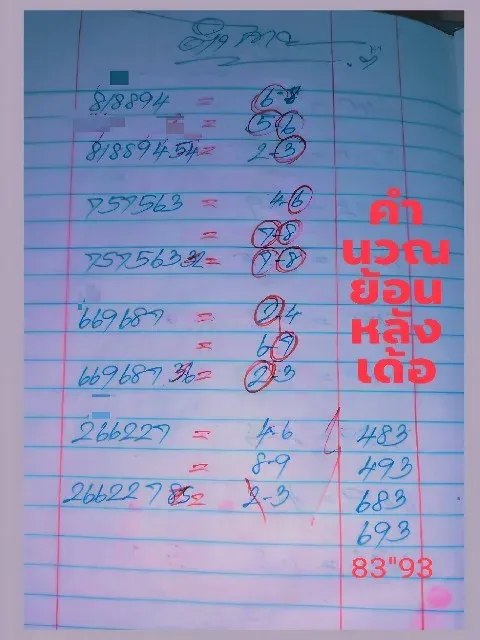 818894 = 6-8
= 56
81889454= 2-3
757563 = 4-6
= 7-8
75756332= 7-8
669687 = 7-4
= 6-7
66968736= 2-3
266227 = 4-6
= 8-9
26622785= 2-3
483
493
683
693
83"93
คำ
นวณ
ย้อน
หลัง
เด้อ